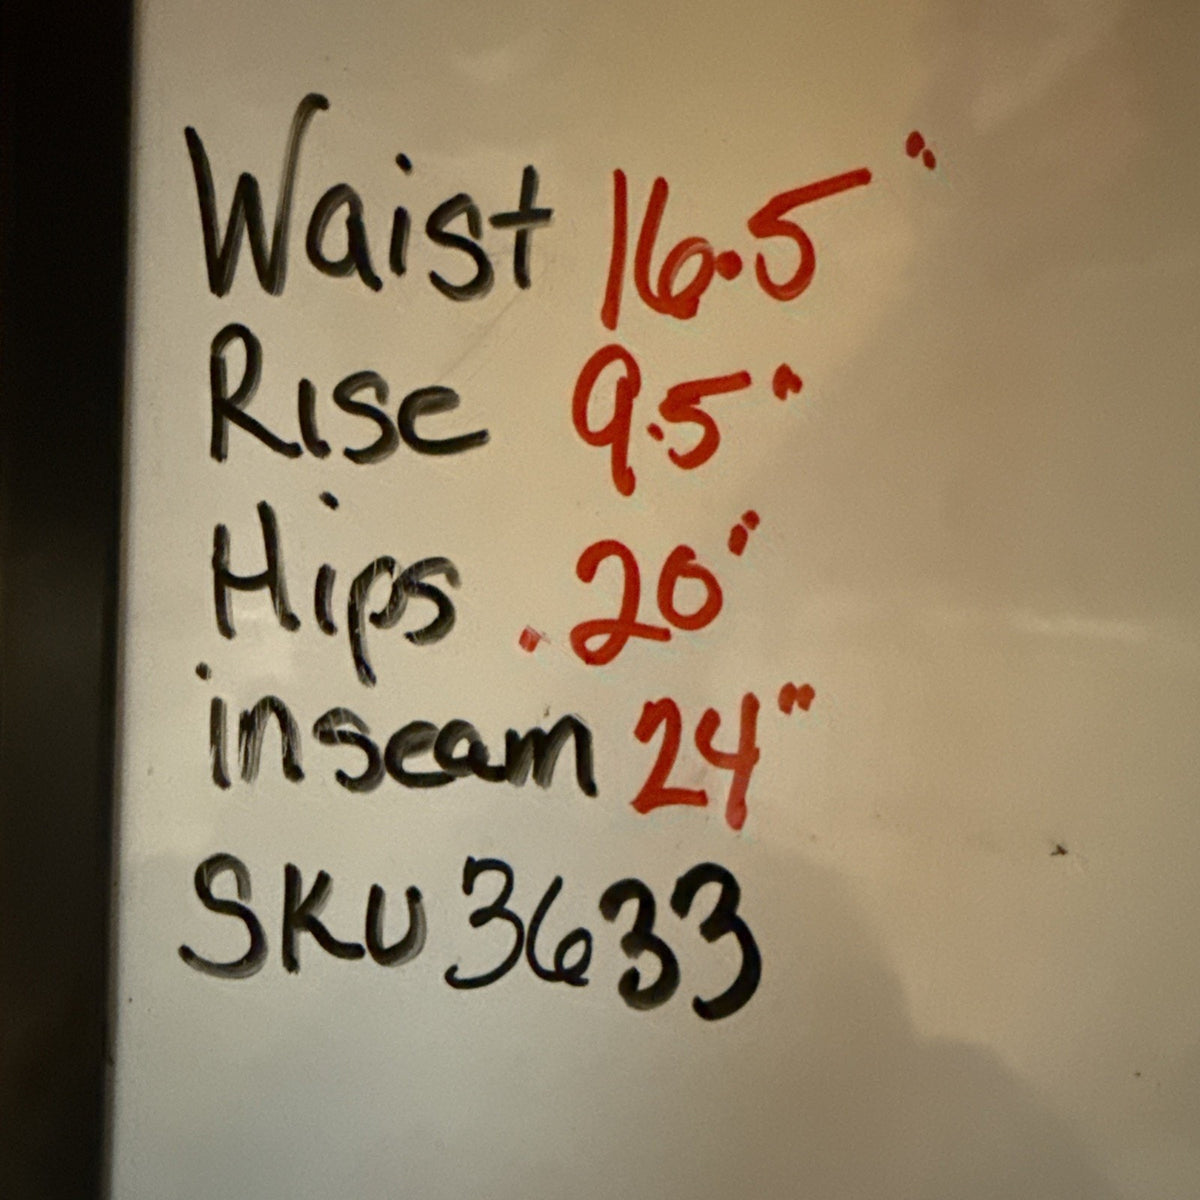 Waist 16.5"
Rise 9.5"
Hips 20"
inseam 24"
SKU 3633